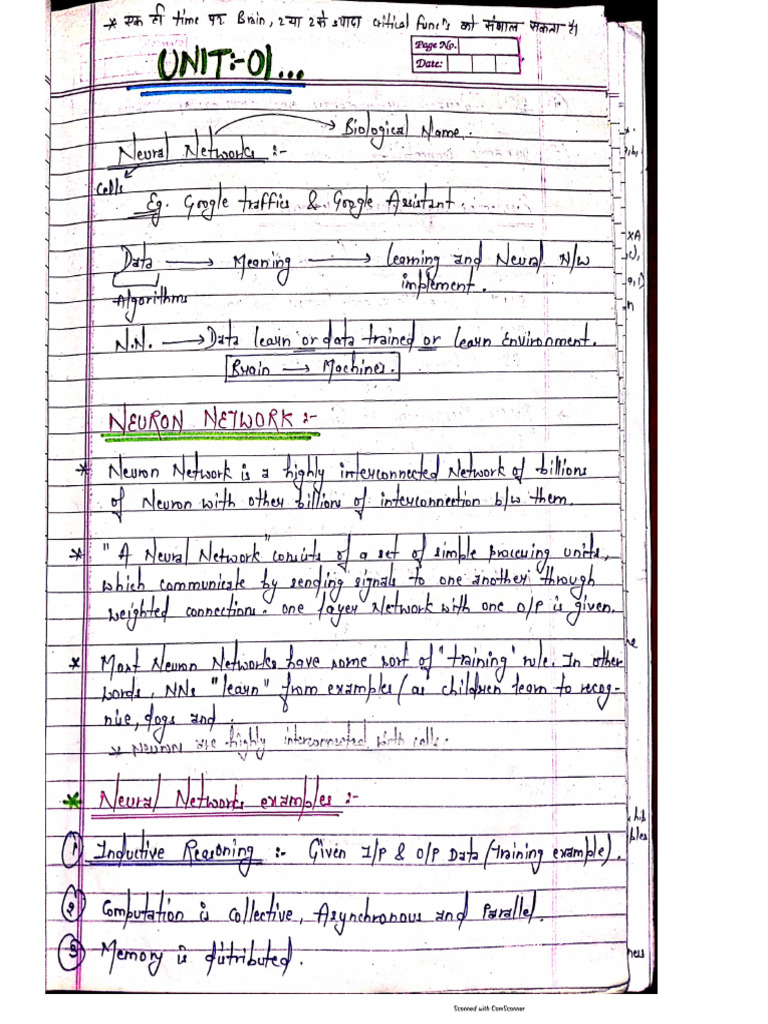 * एक ही time पर Brain, 2 या 2 से ज्यादा critical funcⁿs को संभाल सकता है।
Page No.
Date:
UNIT:-01...
Neural Networks :- → Biological Name.
cells
Eg. Google traffics & Google Assistant.
Data → Meaning → Learning and Neural N/w
implement.
Algorithms
N.N. → Data learn or data trained or learn Environment.
Brain → Machines.
NEURON NETWORK :-
* Neuron Network is a highly interconnected Network of billions
of Neuron with other billion of interconnection b/w them.
* "A Neural Network" consists of a set of simple processing units,
which communicate by sending signals to one another through
weighted connections. one layer Network with one O/P is given.
* Most Neuron Networks have some sort of "training" rule. In other
words, NNs "learn" from examples (as children learn to recog-
nize, dogs and.
* Neuron are highly interconnected with cells.
* Neural Networks examples :-
① Inductive Reasoning :- Given I/P & O/P Data (training example).
② Computation is collective, Asynchronous and Parallel.
③ Memory is distributed.
Scanned with CamScanner